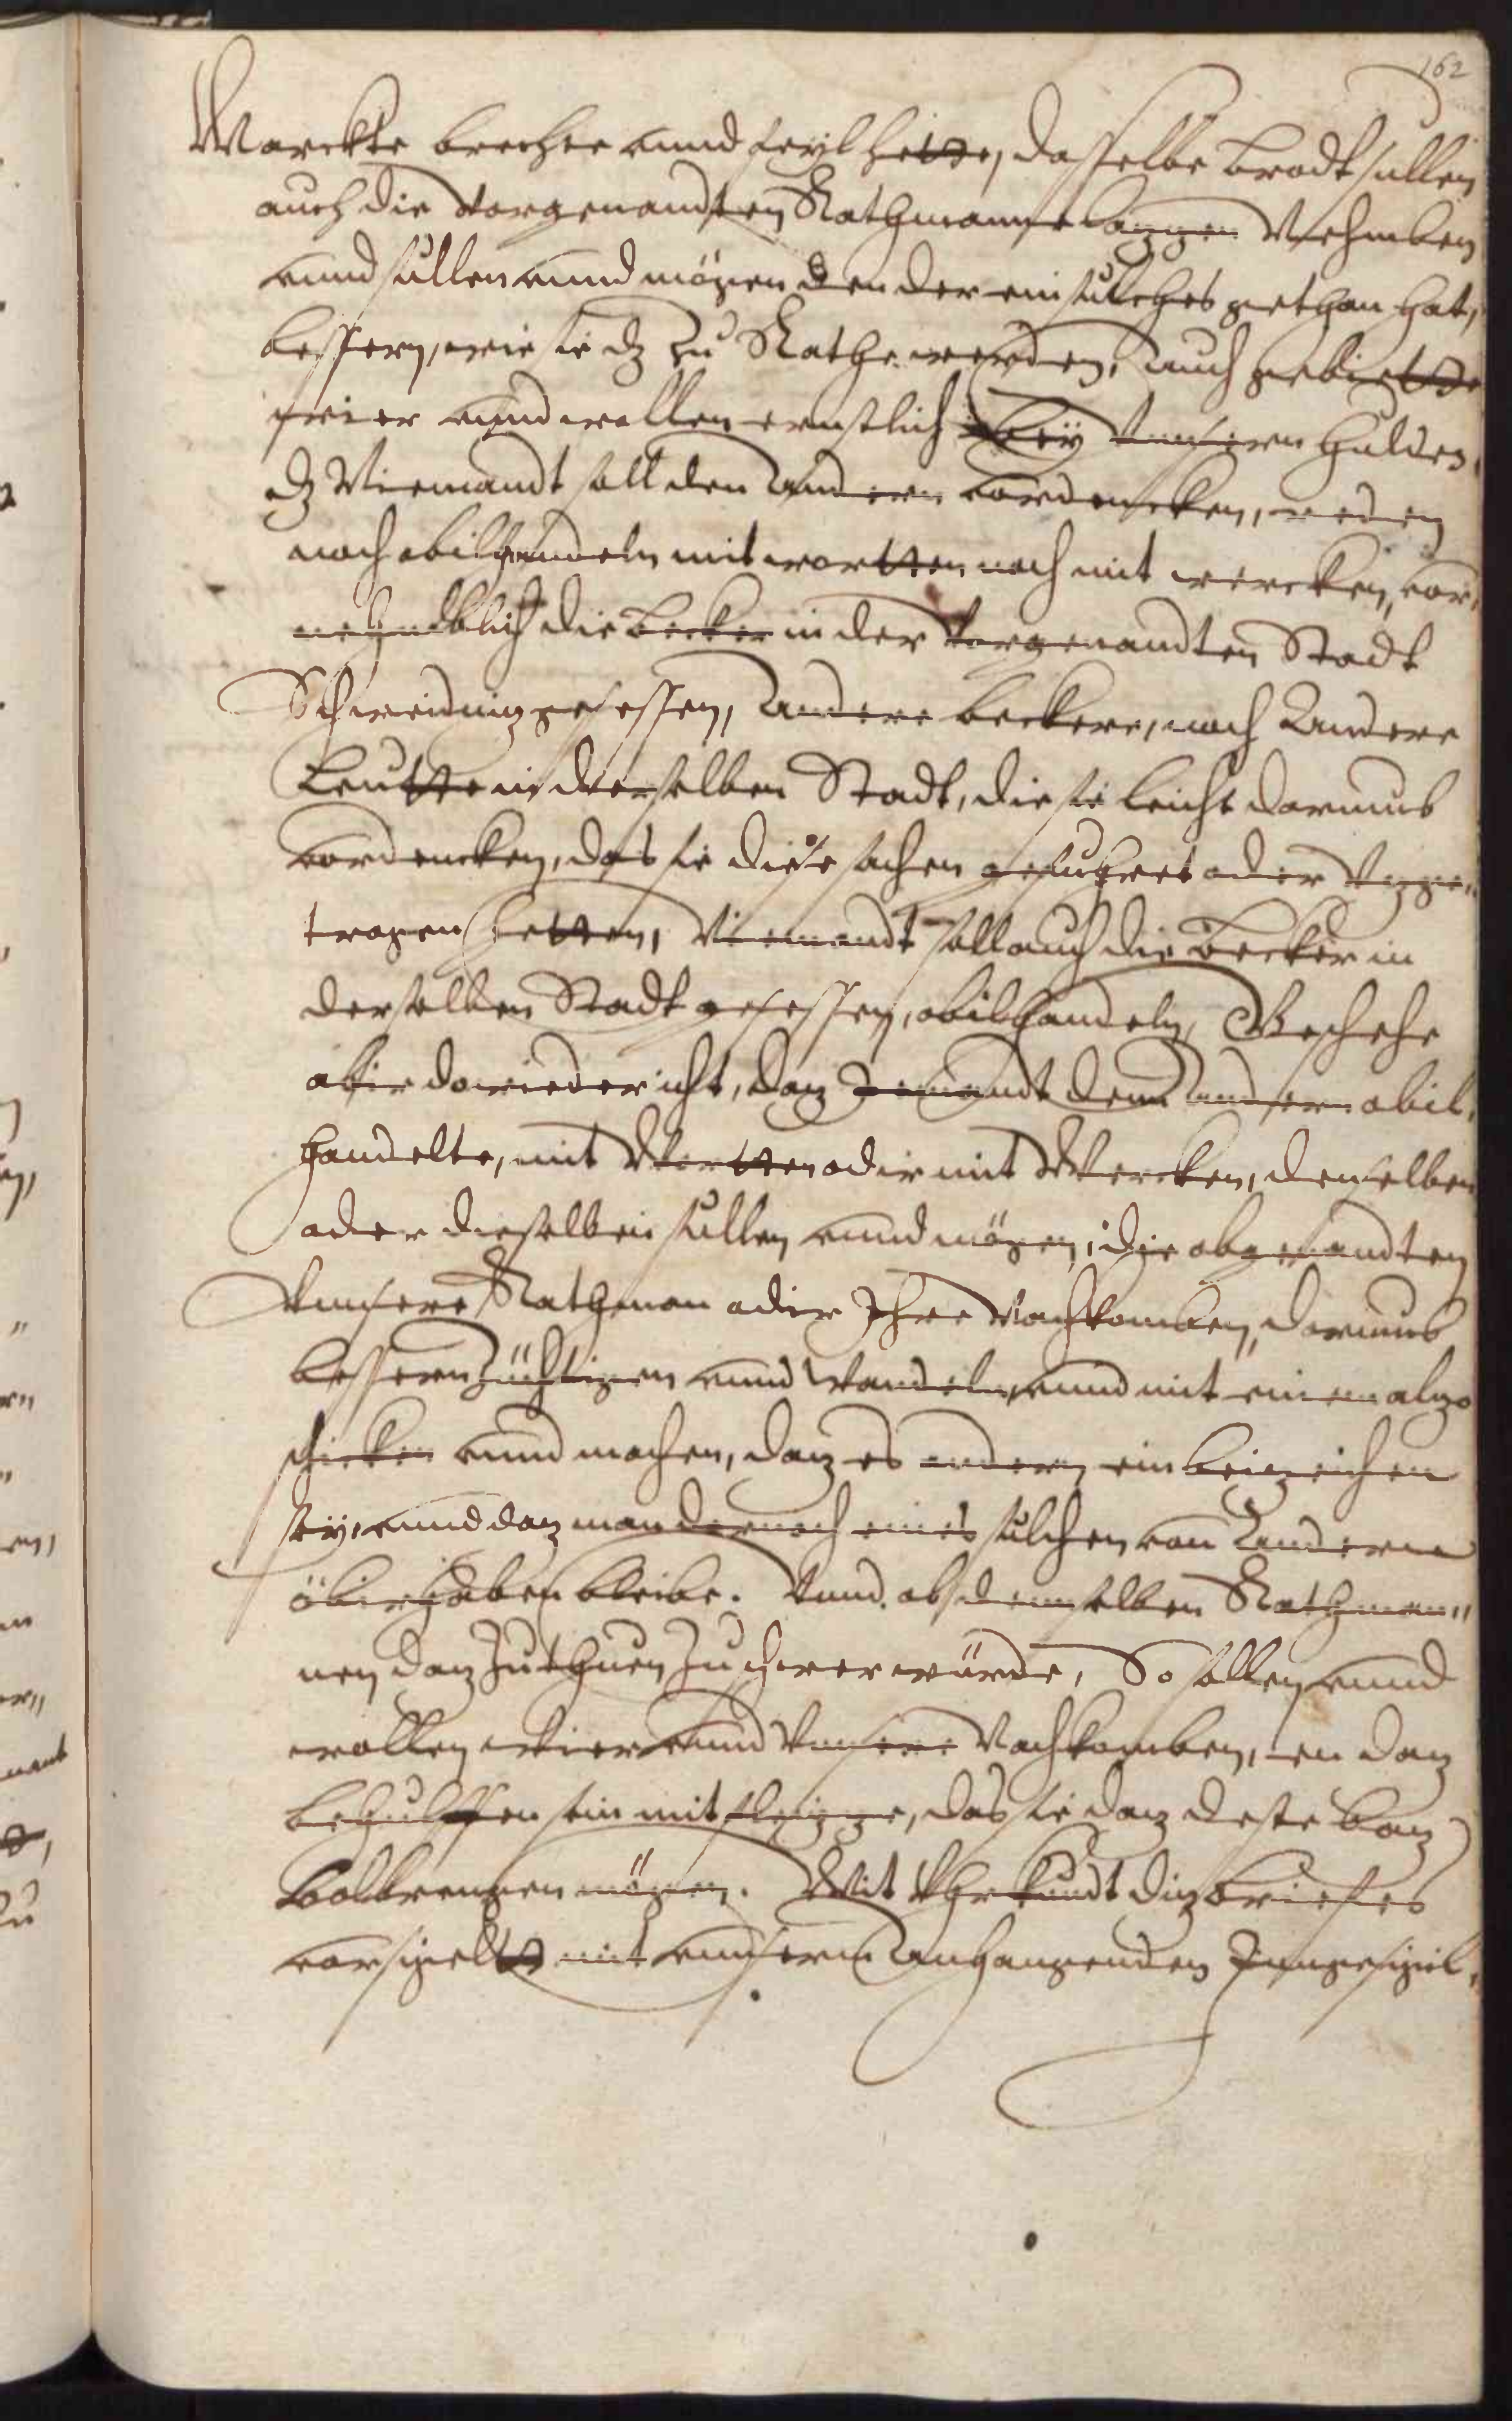 162
Marckte brechte unnd feyl hette, dasselbe Brodt sullen
auch die Vorgenandten Rathmanne Nehmben
unnd sullen unnd mögen den der ein sulches gethan hat,
bessern, wie sie dz zu Rathe werden, Auch gebietten
wier unnd wollen ernstlich bey Vnsern Hulden,
dz Niemandt soll den Andern vordencken, reden
noch obilhandeln mit wortten noch mit wercken, vor,
nehmblich die Becker in der Vorgenandten Stadt
Schweidnitz gesessen, Andere Beckere, noch Andere
Leutte in derselben Stadt, die sie leicht darumb
vordencken, das sie diese sachen gefuhret oder Vzge„
tragen hetten, Niemandt soll auch die Becker in
derselben Stadt gesessen, obilhandeln, Geschehe
abir dowieder icht, daz Jemandt denn Andern obil,
handelte, mit Wortten odir mit Wercken, denselben
oder dieselben sullen unnd mögen, die obgenandten
Vnnsere Rathman odir Ihre Nachkomben, darumb
bessern züchtigen unnd Wandeln, unnd mit einem alzo
schicken unnd machen, daz es andern ein beizeichen
sey, unnd daz man dornoch eines sulchen von Andern
öbirhaben bleibe. Vnnd ab demselben Rathman„
nen daz zuthuen zu schwer würde, So sollen unnd
wollen Wier unnd Vnsere Nachkomben, en daz
behulffen sein mit fleizze, das sie daz deste baz
Volbrengen mögen. Mit Vhrkundt diz brieffes
vorsigelt mit unnserm Anhangenden Inngesigel,